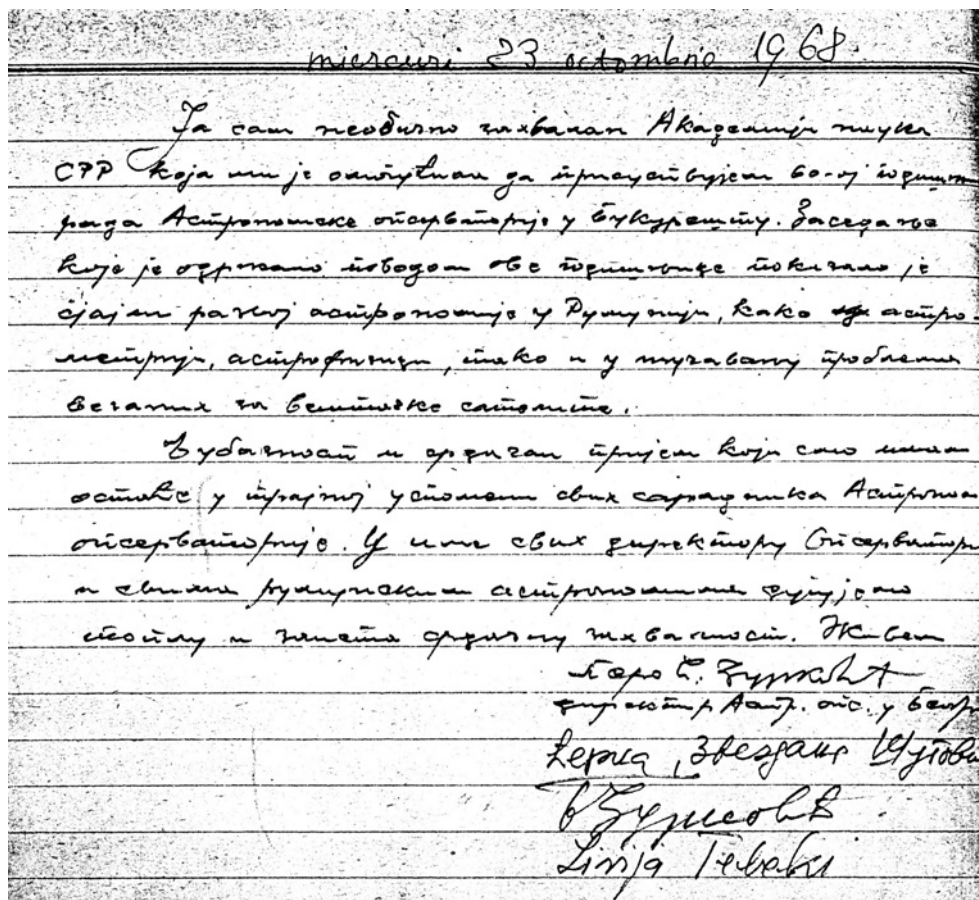 miercuri 23 octombrie 1968.
Ја сам необично захвалан Академији наука
СРР која ми је омогућила да присуствујем 60-ој годишњ
рада Астрономске опсерваторије у Букурешту. Заседање
које је одржано поводом ове годишњице показало је
сјајан развој астрономије у Румунији, како астро-
метрији, астрофизици, тако и у изучавању проблема
везаних за вештачке сателите.
Љубазност и срдачан пријем који смо имали
остаће у трајној успомени свих сарадника Астроном
опсерваторије. У име свих директору Опсерватори
и свима румунским астрономима дугујемо
топлу и заиста срдачну захвалност. Живели
Перо М. Ђурковић
директор Астр. опс. у Беогр
Звездана
Lívija